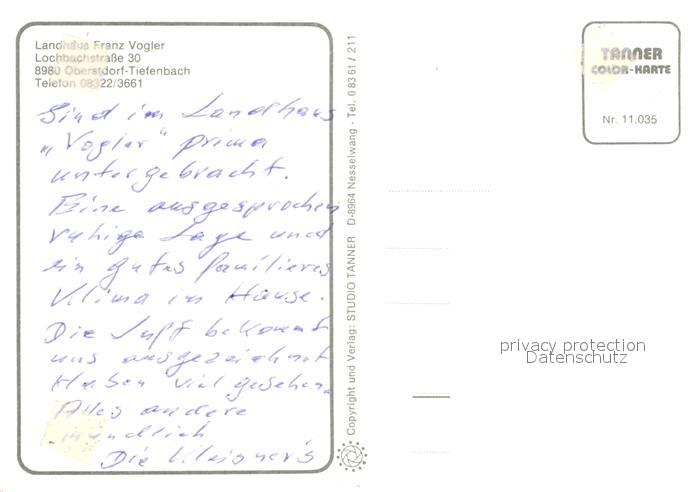 Landhaus Franz Vogler
Lochbachstraße 30
8980 Oberstdorf-Tiefenbach
Telefon 08322/3661
Sind im Landhaus
„Vogler“ prima
untergebracht.
Eine ausgesprochen
ruhige Lage und
ein gutes familieres
Klima im Hause.
Die Luft bekommt
uns ausgezeichnet
Haben viel gesehen.
Alles andere
mündlich
Die Kleisner's
Copyright und Verlag: STUDIO TANNER D-8964 Nesselwang - Tel. 0 83 61 / 211
TANNER
COLOR-KARTE
Nr. 11.035
privacy protection
Datenschutz